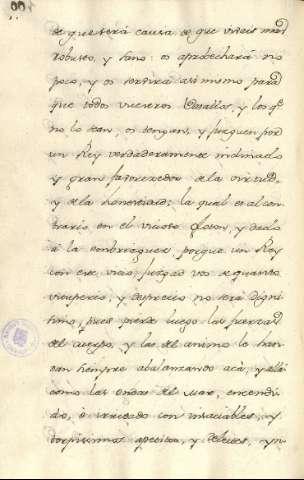 de que será causa de que viváis mas
robusto, y sano: os aprobechará no
poco, y os servirá asimismo para
que todos vuestros Vasallos, y los qe
no lo son, os tengan, y juzguen por
un Rey verdaderamente inclinado
y gran favorecedor de la virtud,
y de la honestidad; la qual es al con
trario en el vicioso gloton, y dado
à la embriaguez, porque un Rey
con este vicio, juzgad vos de quanto
vituperio, y desprecio no será digni
simo, pues pierde luego las fuerzas
del cuerpo, y las del animo lo han
tan siempre abalanzando acà, y allà
como las ondas del mar, encendi
do, è irritado con insaciables, y
torpissimos apetitos, y deleites, y